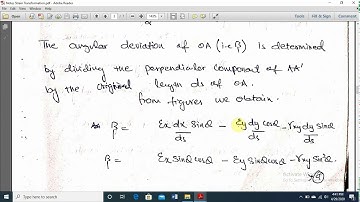 Notes Strain Transformation.pdf - Adobe Reader
File Edit View Window Help
The angular deviation of OA (i.e β) is determined
by dividing the perpendicular component of AA'
by the original length ds of OA.
from figures we obtain.
β = εx dx sinθ / ds - εy dy cosθ / ds - γxy dy sinθ / ds
β = εx sinθ cosθ - εy sinθ cosθ - γxy sin²θ
4
Activate Windows
4:41 PM
4/29/2020